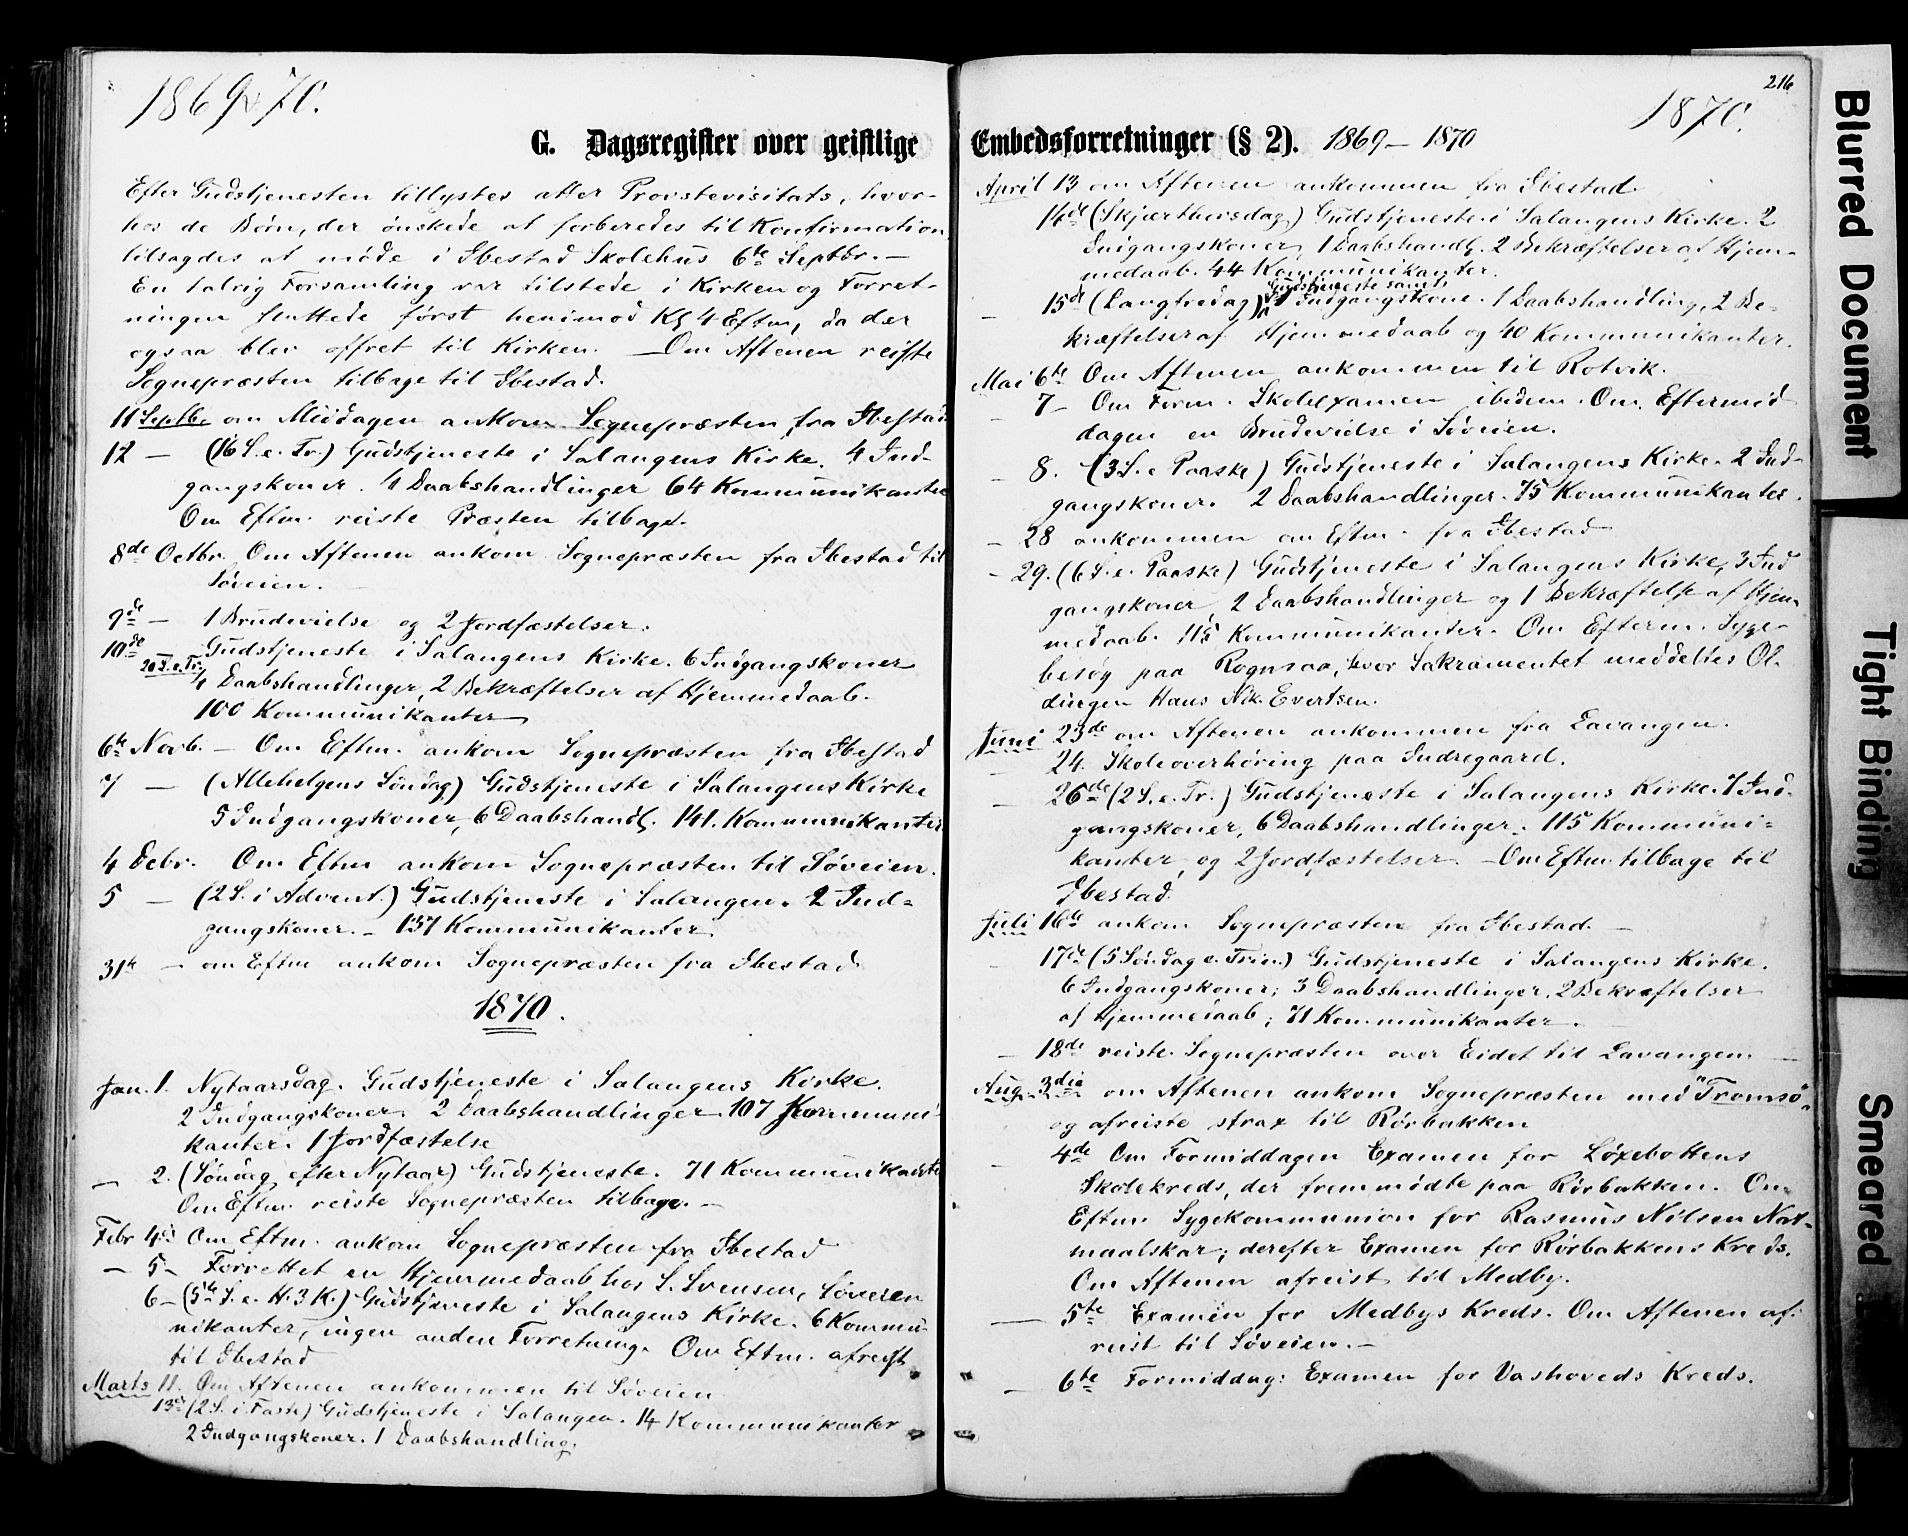 1869 & 70.
G. Dagsregister over geistlige
Efter Gudstjenesten tillystes atter Provstevisitats, hvor-
hos de Børn, der ønskede at forberedes til Konfirmation
tilsagdes at møde i Ibestad Skolehus 6te Septbr. —
En talrig Forsamling var tilstede i Kirken og Forret-
ningen sluttede først henimod Kl 4 Eftm, da der
ogsaa blev offret til Kirken. — Om Aftenen reiste
Sognepræsten tilbage til Ibestad.
11 Septbr om Middagen ankom Sognepræsten fra Ibestad
12 — (16 S. e. Tr.) Gudstjeneste i Salangens Kirke. 4 Ind-
gangskoner. 4 Daabshandlinger 64 Kommunikanter
Om Eftm. reiste Præsten tilbage.
8de Octbr. Om Aftenen ankom Sognepræsten fra Ibestad til
Søveien. —
9de — 1 Brudevielse og 2 Jordfæstelser.
10de Gudstjeneste i Salangens Kirke. 6 Indgangskoner
20 S. e. Tr. 4 Daabshandlinger, 2 Bekræftelser af Hjemmedaab.
100 Kommunikanter
6te Novb. — Om Eftm. ankom Sognepræsten fra Ibestad
7 — (Allehelgens Søndag) Gudstjeneste i Salangens Kirke
5 Indgangskoner, 6 Daabshandl. 141. Kommunikanter
4 Debr. Om Eftm ankom Sognepræsten til Søveien.
5 — (2 S. i Advent.) Gudstjeneste i Salangen. 2 Ind-
gangskoner. — 137 Kommunikanter
31te — om Eftm ankom Sognepræsten fra Ibestad
1870.
Jan. 1. Nytaarsdag. Gudstjeneste i Salangens Kirke.
2 Indgangskoner. 2 Daabshandlinger 107 Kommuni-
kanter. 1 Jordfæstelse
— 2. (Søndag efter Nytaar) Gudstjeneste. 71 Kommunikanter
Om Eftm. reiste Sognepræsten tilbage. —
Febr 4de Om Eftm. ankom Sognepræsten fra Ibestad
— 5 — Forrettet en Hjemmedaab hos S. Svensen, Søveien
6 — (5te S. e. H. 3 K.) Gudstjeneste i Salangens Kirke. 6 Kommu-
nikanter, ingen anden Forretning. Om Eftm. afreist
til Ibestad
Marts 11. Om Aftenen ankommen til Søveien
13de (2 S. i Faste) Gudstjeneste i Salangen. 14 Kommunikanter
2 Indgangskoner. 1 Daabshandling.
216
1870.
Embedsforretninger (§ 2). 1869 — 1870
April 13 om Aftenen ankommen fra Ibestad.
14de (Skjærthorsdag) Gudstjeneste i Salangens Kirke. 2
Indgangskoner, 1 Daabshandl. 2 Bekræftelser af Hjem-
medaab. 44 Kommunikanter.
Gudstjeneste samt
— 15de (Langfredag) 1 Indgangskone. 1 Daabshandling, 2 Be-
kræftelser af Hjemmedaab og 40 Kommunikanter.
Mai 6te Om Aftenen ankommen til Rotvik.
— 7 — Om Form. Skoleexamen ibidem. Om Eftermid
dagen en Brudevielse i Søveien.
— 8. (3 S. e Paaske) Gudstjeneste i Salangens Kirke. 2 Ind-
gangskoner. 2 Daabshandlinger. 75 Kommunikanter.
— 28 ankommen om Eftm. fra Ibestad
— 29. (6 S. e. Paaske) Gudstjeneste i Salangens Kirke, 3 Ind
gangskoner, 2 Daabshandlinger og 1 Bekræftelse af Hjem
medaab. 115 Kommunikanter. Om Efterm. Syge-
besøg paa Rognsaa, hvor Sakramentet meddeltes Ol-
dingen Hans Nik. Evertsen.
Juni 23de om Aftenen ankommen fra Lavangen.
— 24. Skoleoverhøring paa Indregaard.
— 26de (2 S. e. Tr.) Gudstjeneste i Salangens Kirke. 7 Ind-
gangskoner, 6 Daabshandlinger. 115 Kommuni-
kanter, og 2 Jordfæstelser. — Om Eftm. tilbage til
Ibestad.
Juli 16te ankom Sognepræsten fra Ibestad. —
17de (5 Søndag e. Trin.) Gudstjeneste i Salangens Kirke.
6 Indgangskoner; 3 Daabshandlinger. 2 Bekræftelser
af Hjemmedaab; 71 Kommunikanter.
— 18de reiste Sognepræsten over Eidet til Lavangen. —
Aug. 3die om Aftenen ankom Sognepræsten med "Tromsø"
og afreiste strax til Rørbakken
— 4de Om Formiddagen Examen for Løxebottens
Skolekreds, der fremmødte paa Rørbakken. Om
Eftm. Sygekommunion for Rasmus Nilsen Nor-
maalskar; derefter Examen for Rørbakkens Kreds.
Om Aftenen afreist til Medby.
— 5te Examen for Medbys Kreds. Om Aftenen af-
reist til Søveien. —
— 6te Formiddag: Examen for Vashoveds Kreds.
Blurred Document
Tight Binding
Smeared